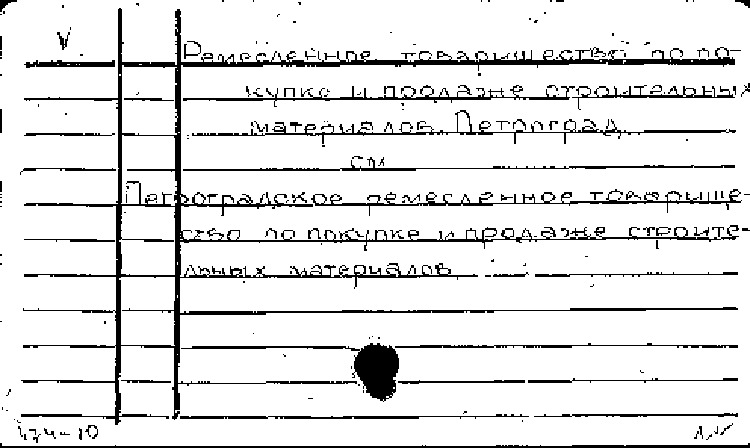 V
Ремесленное товарищество по по-
купке и продаже строительных
материалов. Петроград
см
Петроградское ремесленное товарище-
ство по покупке и продаже строите-
льных материалов